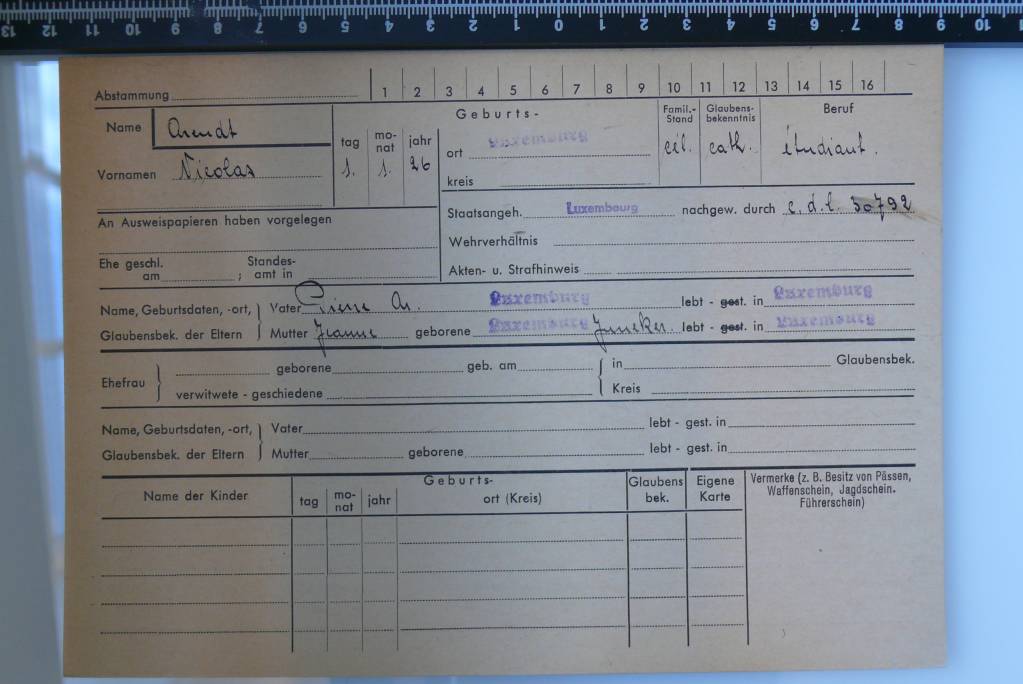 13 12 11 10 9 8 7 6 5 4 3 2 1 0 1 2 3 4 5 6 7 8 9 10
Abstammung 1 2 3 4 5 6 7 8 9 10 11 12 13 14 15 16
Name Arendt
Vornamen Nicolas
Geburts-
tag monat jahr
1. 1. 26
ort Luxemburg
kreis
Famil.-Stand
cél.
Glaubensbekenntnis
cath.
Beruf
étudiant.
An Ausweispapieren haben vorgelegen
Staatsangeh. Luxembourg nachgew. durch c. d. l. 30792
Wehrverhältnis
Ehe geschl. am ; Standesamt in
Akten- u. Strafhinweis
Name, Geburtsdaten, -ort, Vater Pierre Ar. Luxemburg lebt - gest. in Luxemburg
Glaubensbek. der Eltern Mutter Jeanne geborene Luxemburg Juncker. lebt - gest. in Luxemburg
Ehefrau geborene geb. am in Glaubensbek.
verwitwete - geschiedene Kreis
Name, Geburtsdaten, -ort, Vater lebt - gest. in
Glaubensbek. der Eltern Mutter geborene lebt - gest. in
Name der Kinder
Geburts-
tag monat jahr ort (Kreis)
Glaubens bek.
Eigene Karte
Vermerke (z. B. Besitz von Pässen,
Waffenschein, Jagdschein.
Führerschein)